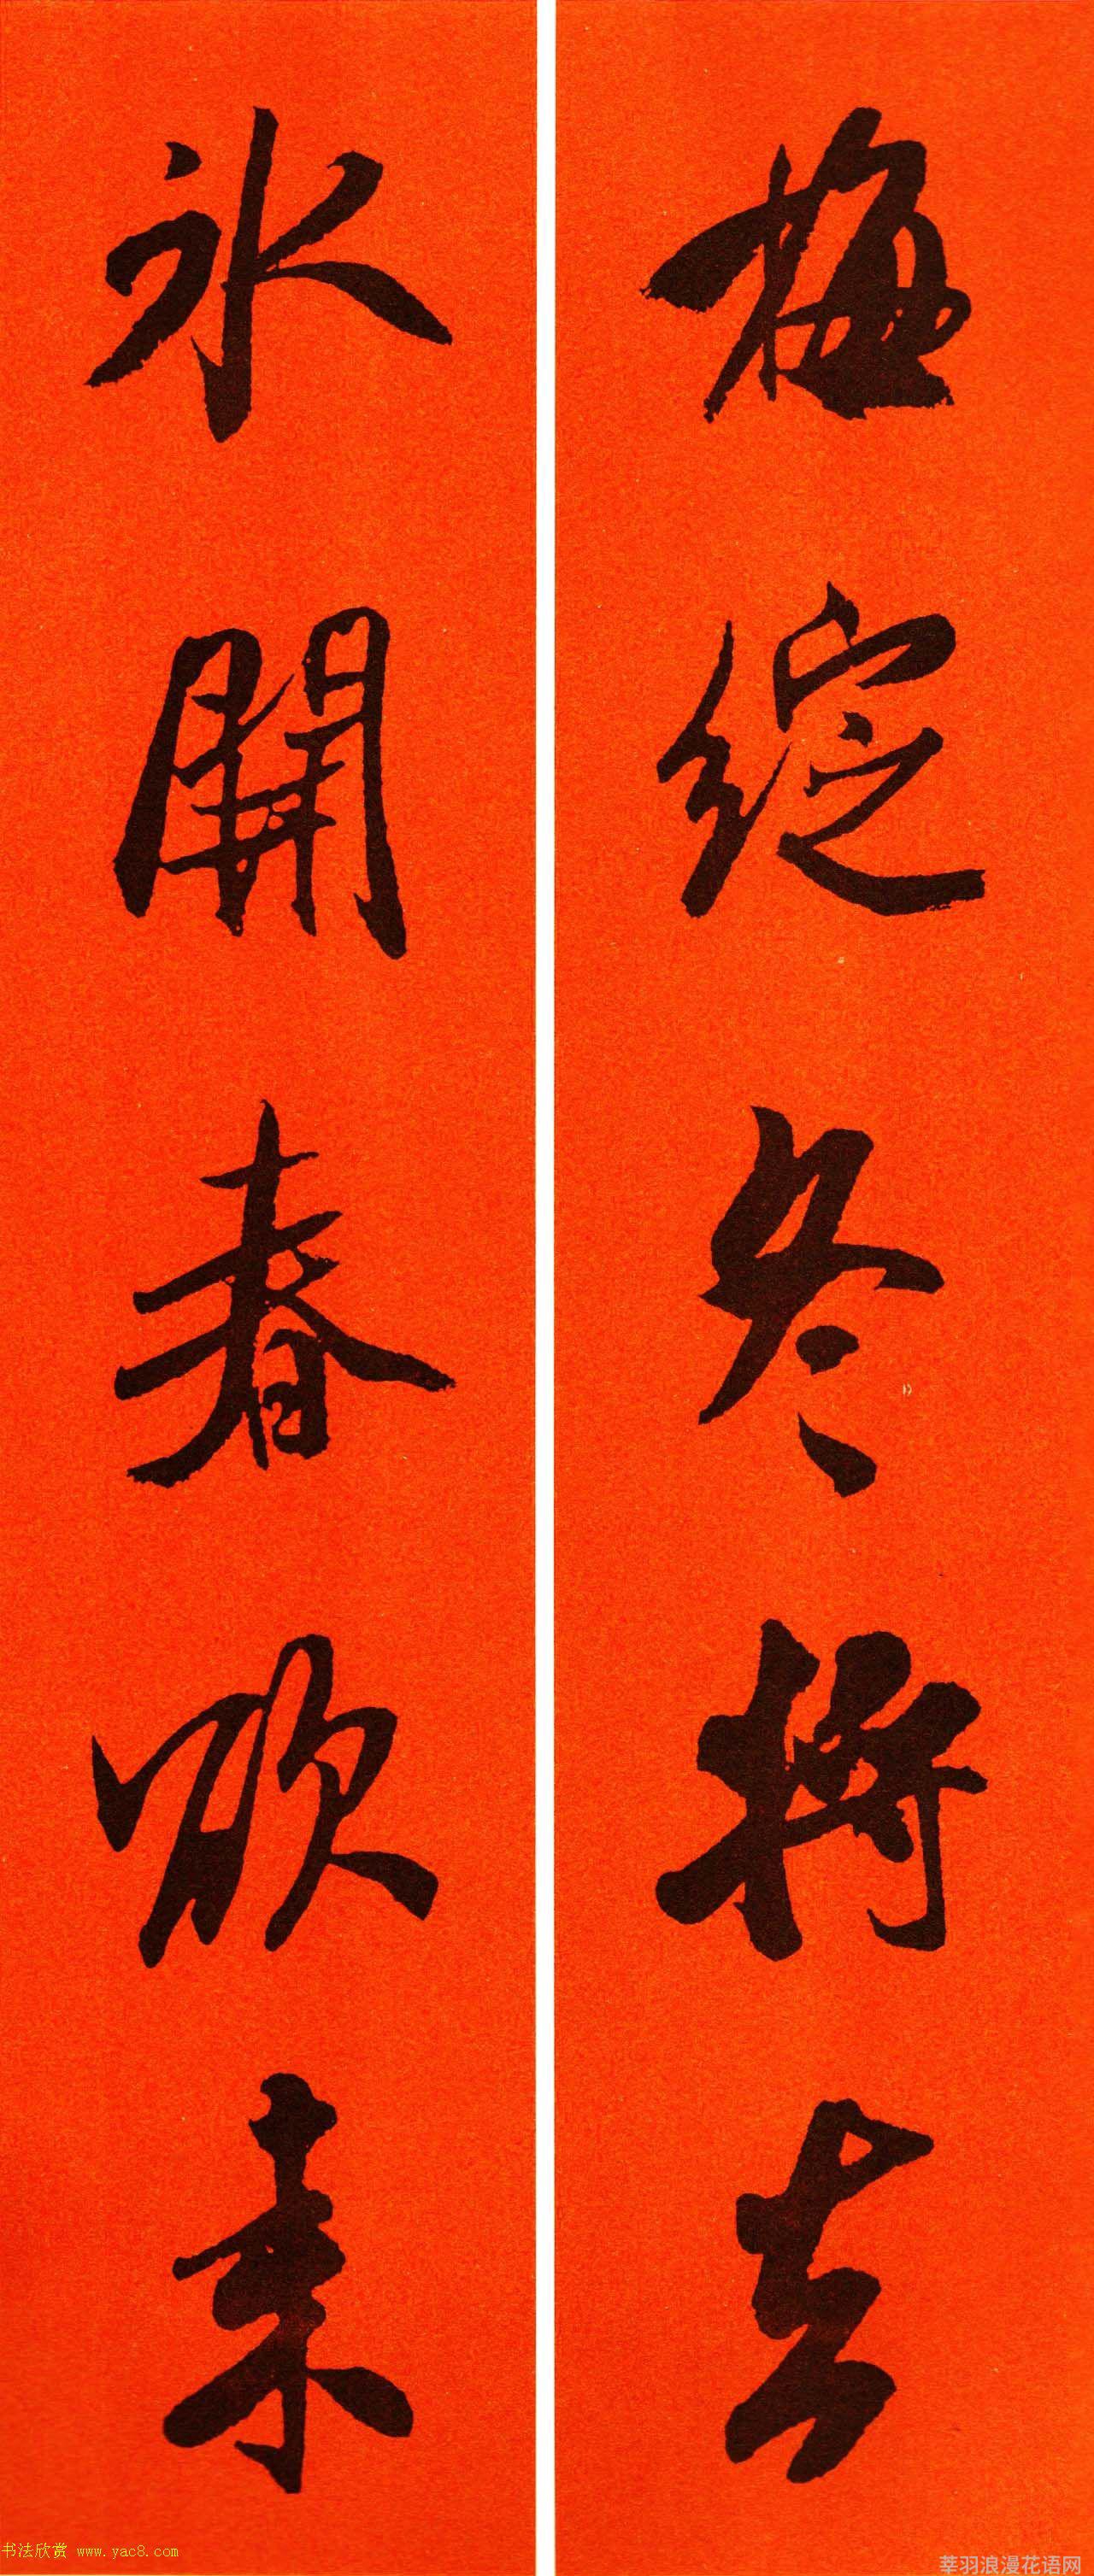 梅綻冬将去
氷開春欲来
书法欣赏 www.yac8.com
莘羽浪漫花语网